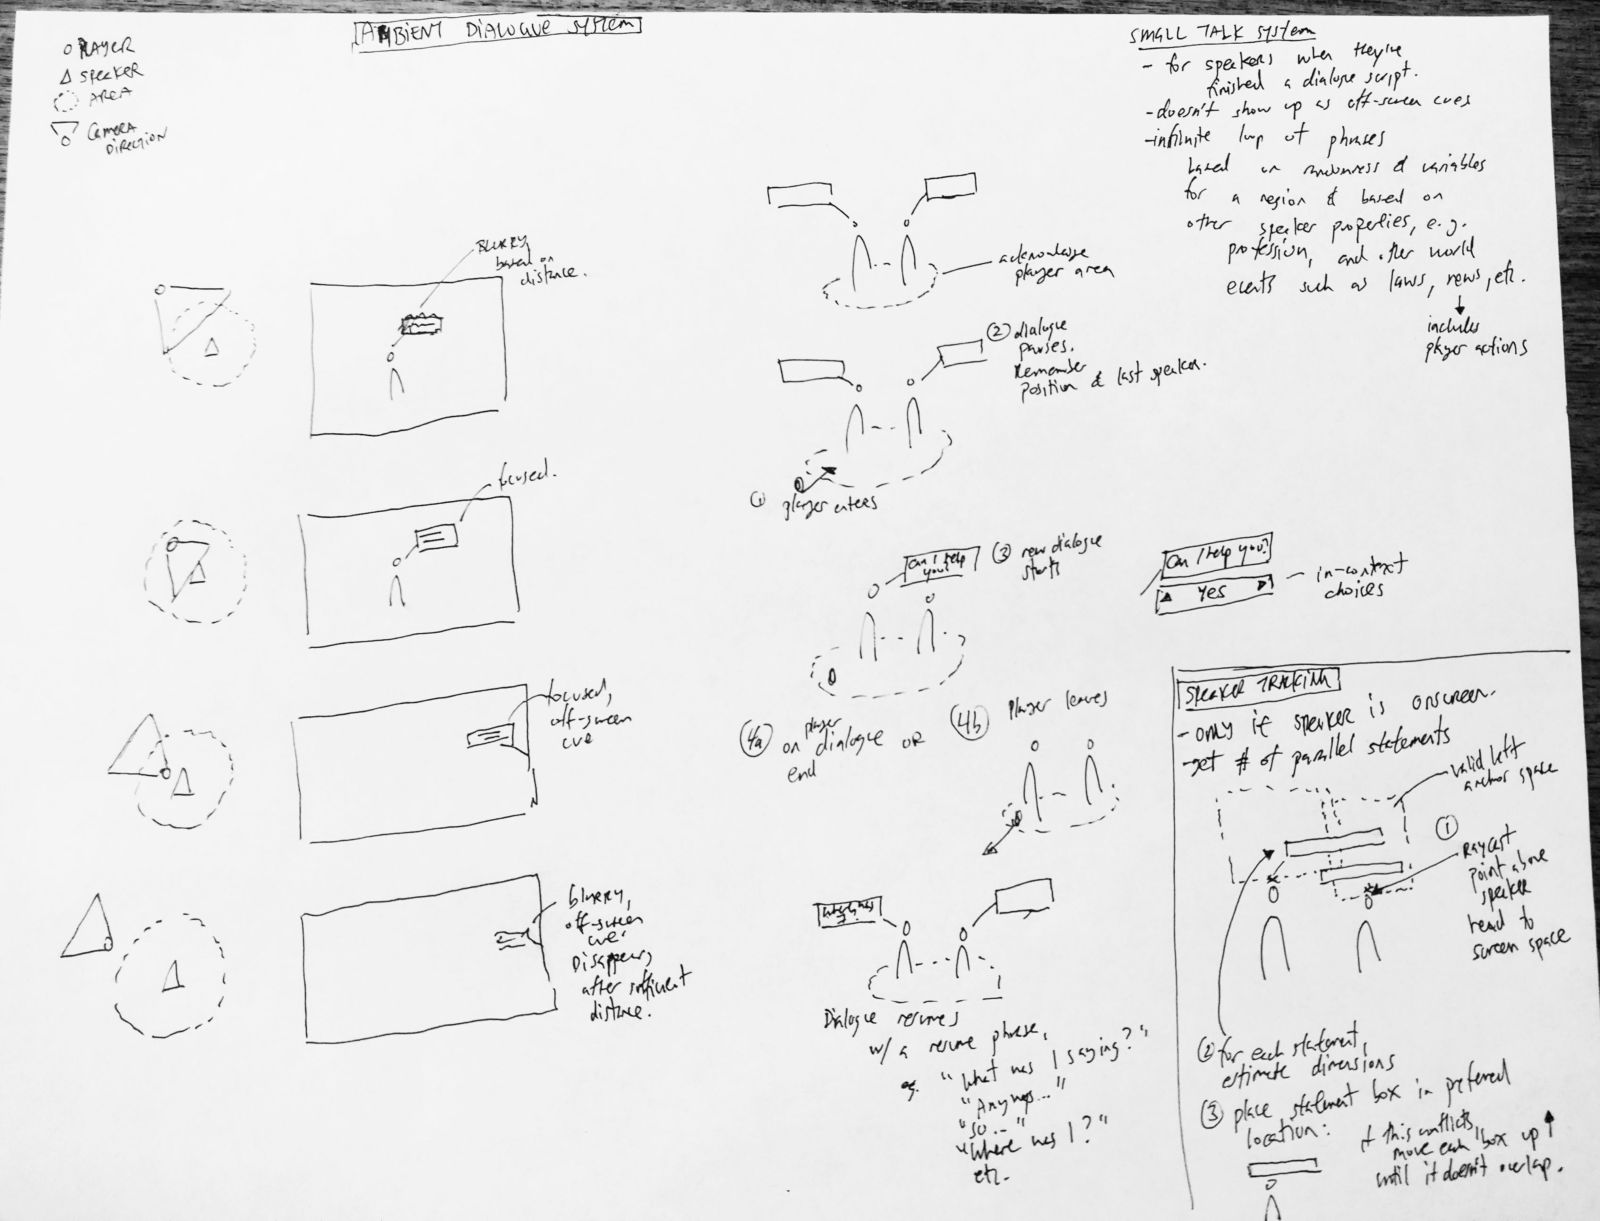 AMBIENT DIALOGUE SYSTEM
PLAYER
SPEAKER
AREA
CAMERA
DIRECTION
BLURRY
based on
distance.
focused.
focused,
off-screen
cue
blurry,
off-screen
cue.
Disappears
after sufficient
distance.
acknowledge
player area
② dialogue
pauses.
Remember
position & last speaker.
① player enters
Can I help
you?
③ new dialogue
starts
Can I help you?
Yes
in-context
choices
4a on player
dialogue OR
end
4b Player leaves
Dialogue resumes
w/ a resume phrase,
eg. "What was I saying?"
"Anyways..."
"So..."
"Where was I?"
etc.
SMALL TALK SYSTEM
- for speakers when they're
finished a dialogue script.
- doesn't show up as off-screen cues
- infinite loop of phrases
based on randomness & variables
for a region & based on
other speaker properties, e.g.
profession, and other world
events such as laws, news, etc.
includes
player actions
SPEAKER TRACKING
- only if speaker is onscreen.
- get # of parallel statements
valid left
anchor space
①
Raycast
point above
speaker
head to
screen space
② for each statement,
estimate dimensions
③ place statement box in preferred
location:
if this conflicts,
move each box up
until it doesn't overlap.